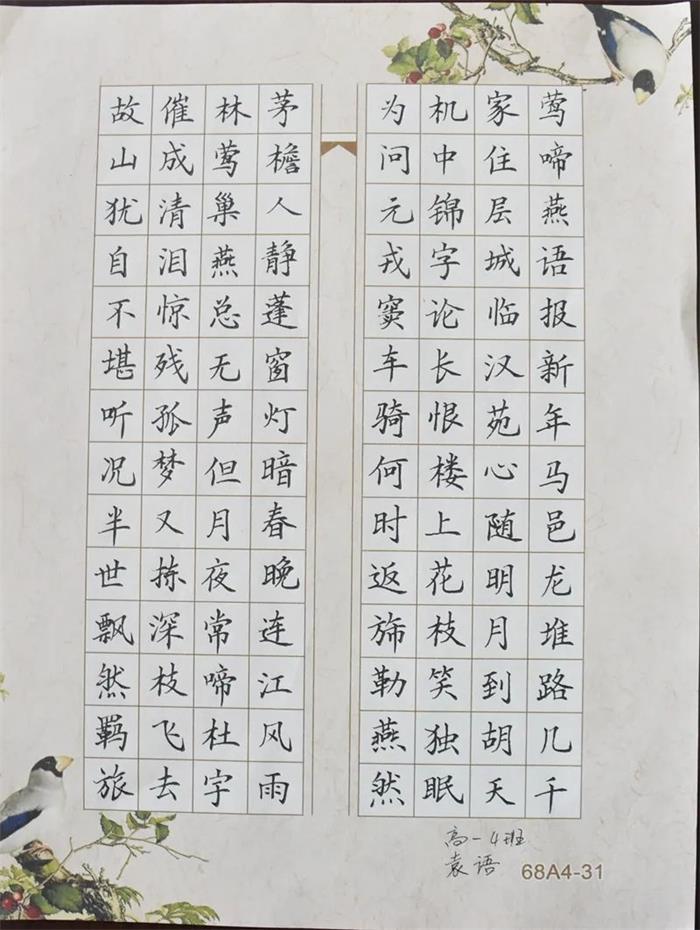 莺啼燕语报新年马邑龙堆路几千
家住层城临汉苑心随明月到胡天
机中锦字论长恨楼上花枝笑独眠
为问元戎窦车骑何时返旆勒燕然
茅檐人静蓬窗灯暗春晚连江风雨
林莺巢燕总无声但月夜常啼杜宇
催成清泪惊残孤梦又拣深枝飞去
故山犹自不堪听况半世飘然羁旅
高一4班
袁语
68A4-31